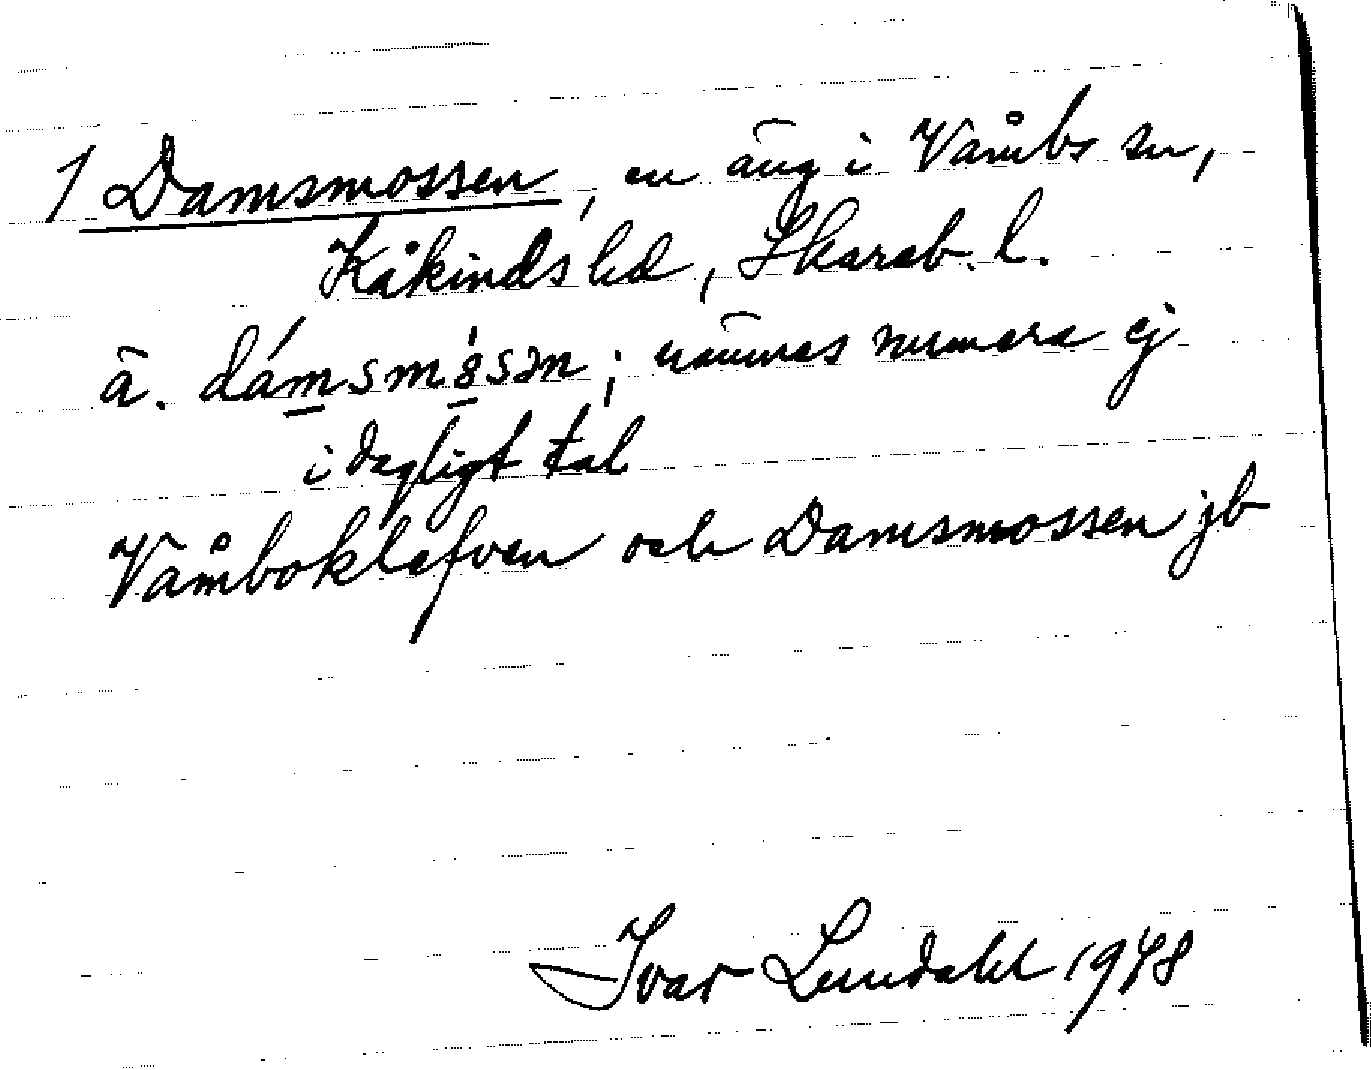 1 Damsmossen, en äng i Våmbs sn,
Kåkinds hd, Skarab. l.
ä. dámsmòsən; nämnes numera ej
i dagligt tal
Våmboklefven och Damsmossen jb
Ivar Lundahl 1948